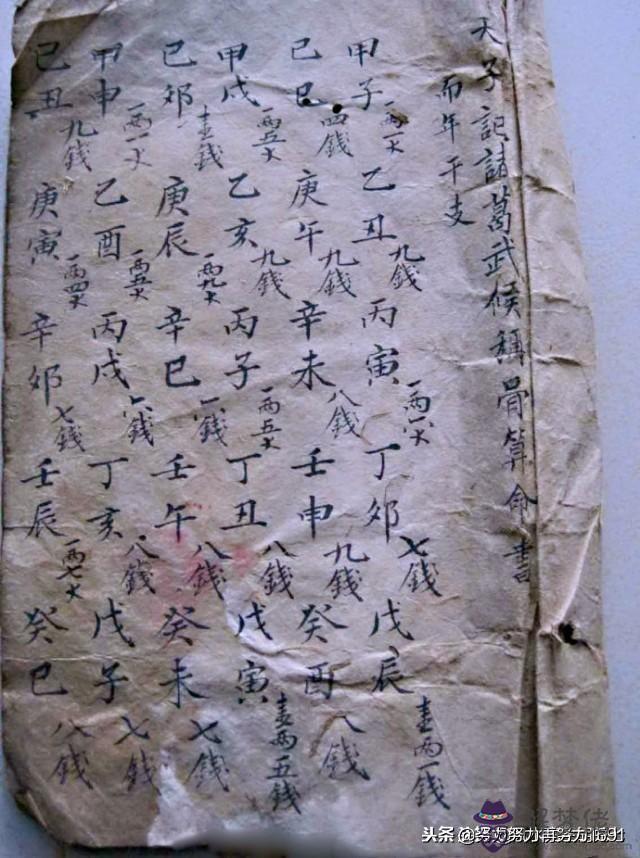 天子記諸葛武候稱骨算命書
而年干支
甲子 一两一大 乙丑 九錢 丙寅 一两八大 丁郊 七錢 戊辰 壹两一錢
己巳 四錢 庚午 九錢 辛未 八錢 壬申 九錢 癸酉 八錢
甲戌 一两五大 乙亥 九錢 丙子 一两五大 丁丑 八錢 戊寅 壹两五錢
己郊 壹錢 庚辰 一两九大 辛巳 錢 壬午 八錢 癸未 七錢
甲申 一两一大 乙酉 一两五大 丙戌 六錢 丁亥 八錢 戊子 七錢
己丑 九錢 庚寅 一两四大 辛郊 七錢 壬辰 一两七大 癸巳 八錢
头条 @努力努力再努力